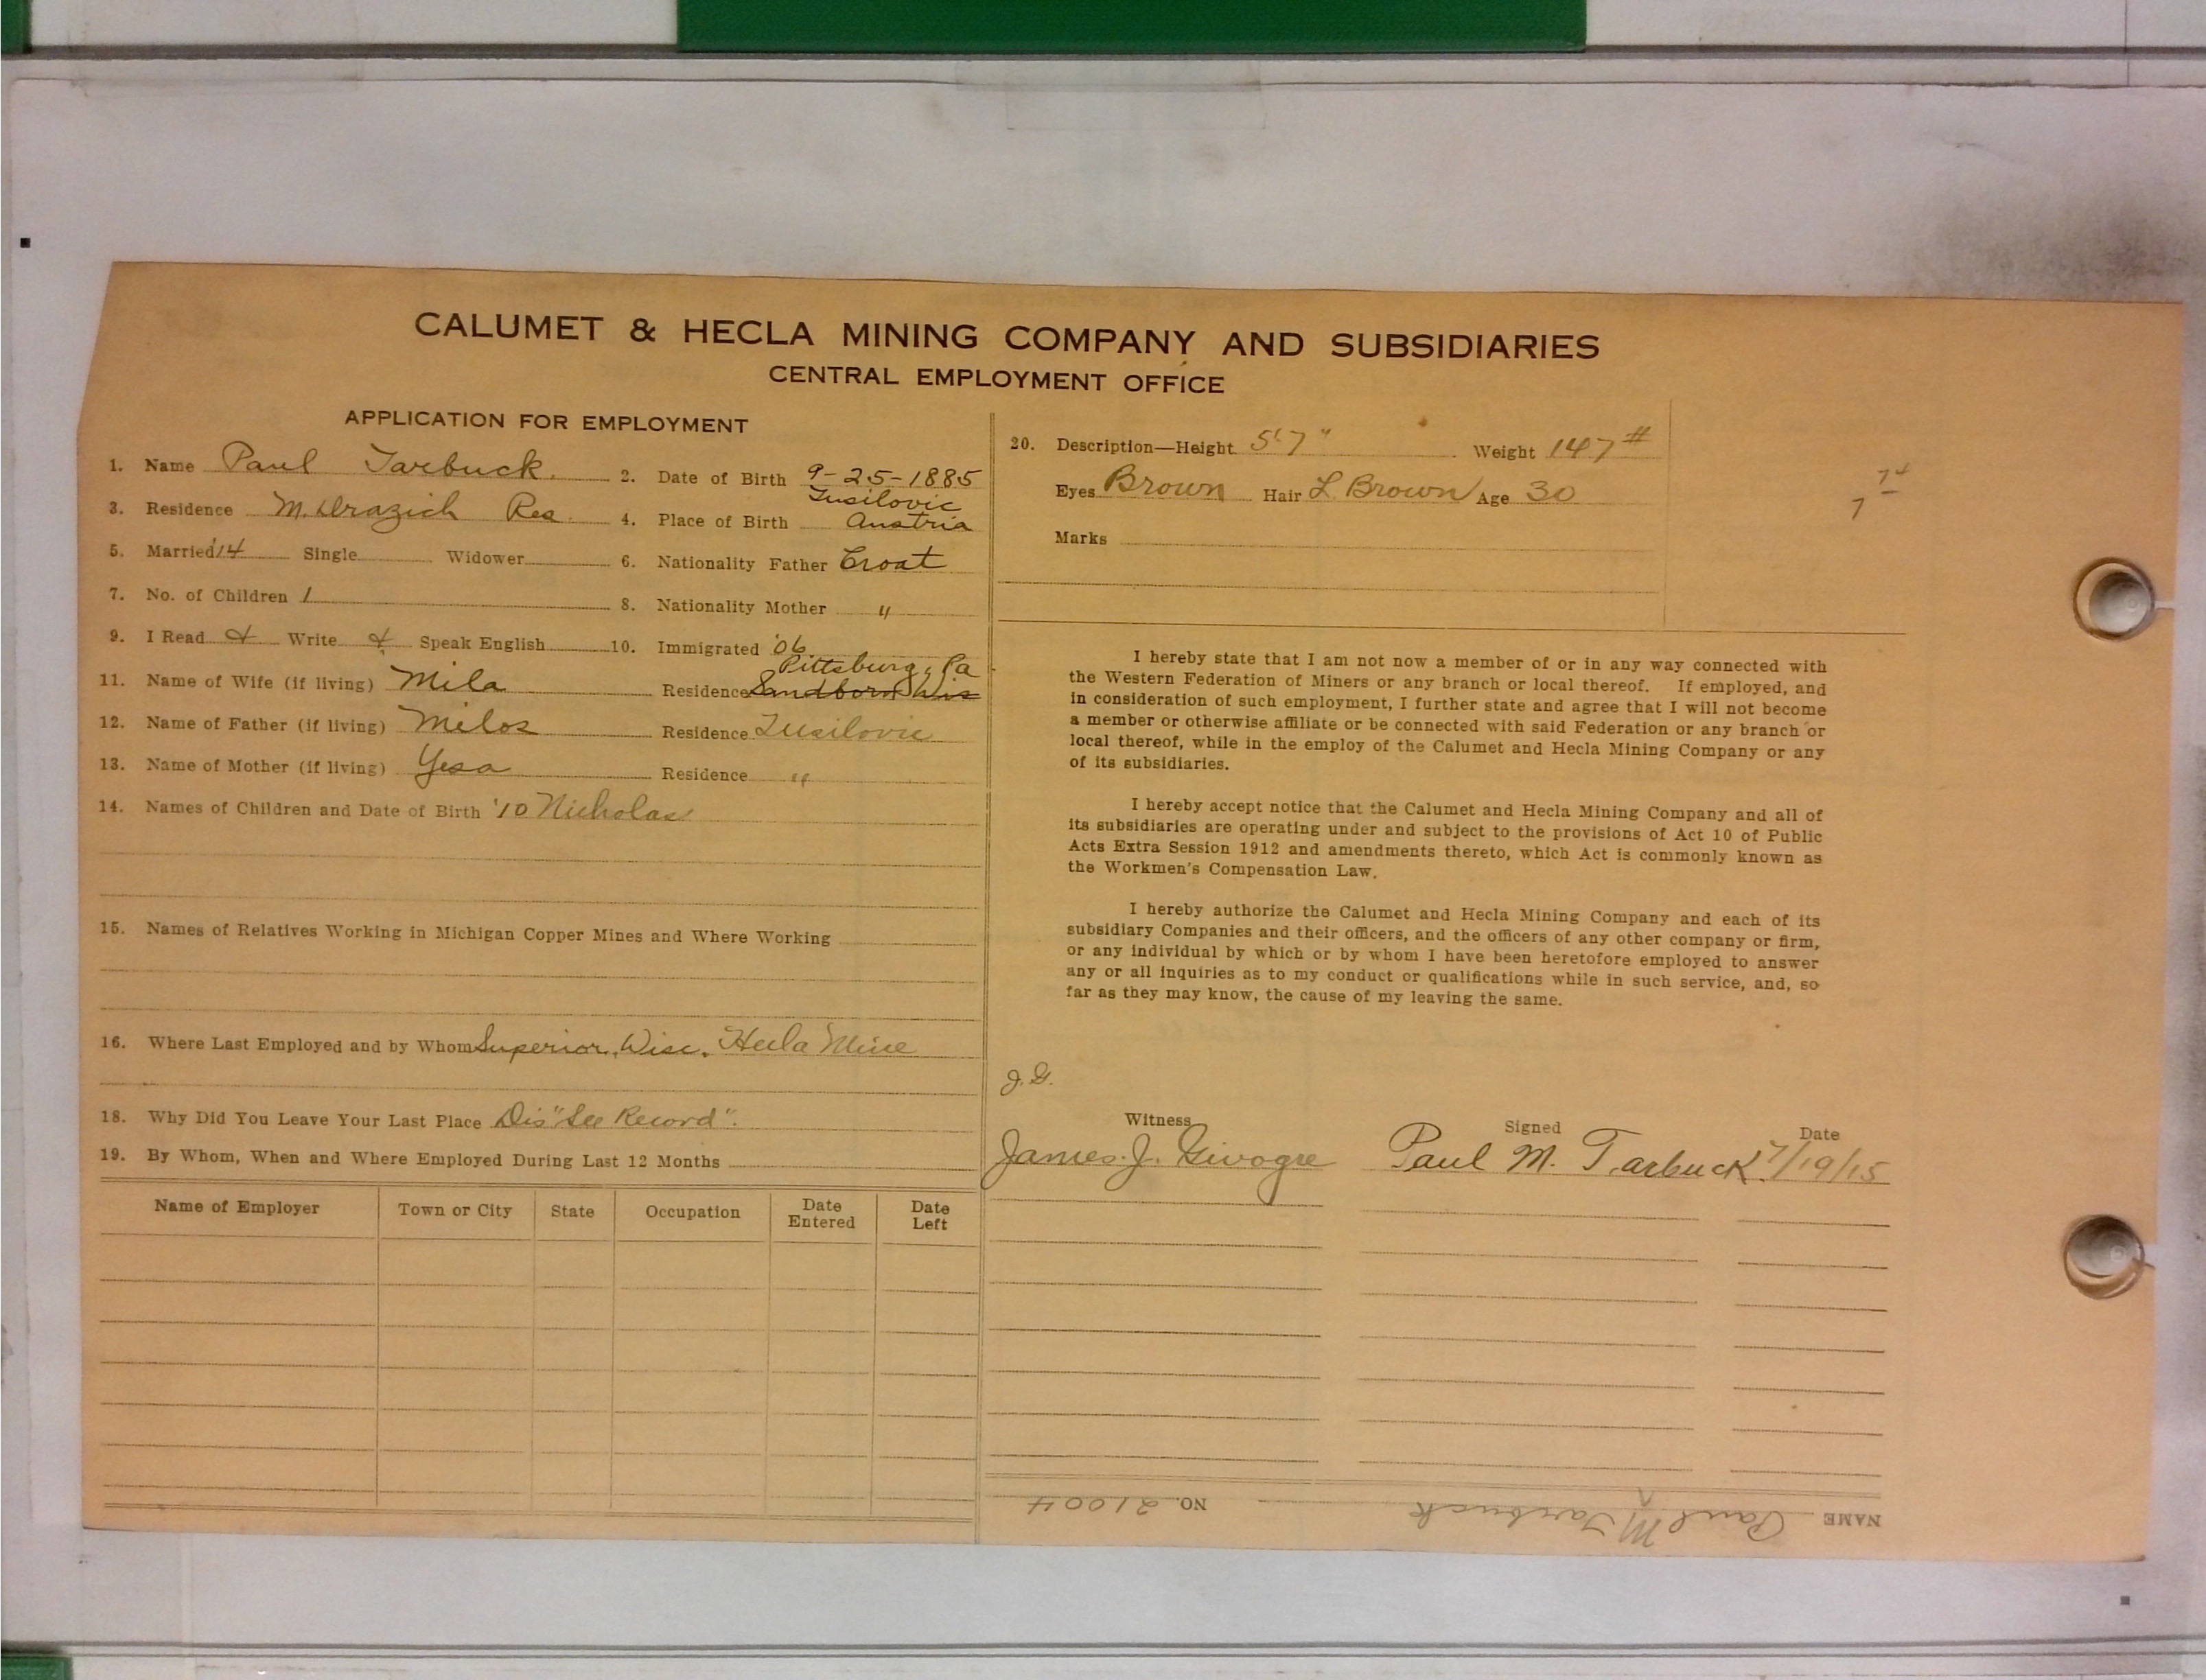 CALUMET & HECLA MINING COMPANY AND SUBSIDIARIES
CENTRAL EMPLOYMENT OFFICE
APPLICATION FOR EMPLOYMENT
1. Name Paul Tarbuck. 2. Date of Birth 9-25-1885
3. Residence M. Drazich Res. 4. Place of Birth Tusilovic Austria
5. Married '14 Single Widower 6. Nationality Father Croat
7. No. of Children 1 8. Nationality Mother "
9. I Read & Write & Speak English 10. Immigrated '06
11. Name of Wife (if living) Mila Residence Sandborn Wis Pittsburg, Pa
12. Name of Father (if living) Milos Residence Tusilovic
13. Name of Mother (if living) Yesa Residence "
14. Names of Children and Date of Birth '10 Nicholas
15. Names of Relatives Working in Michigan Copper Mines and Where Working
16. Where Last Employed and by Whom Superior, Wisc. Hecla Mine
18. Why Did You Leave Your Last Place Dis "See Record".
19. By Whom, When and Where Employed During Last 12 Months
Name of Employer Town or City State Occupation Date Entered Date Left
20. Description—Height 5'7" Weight 147#
Eyes Brown Hair L. Brown Age 30
Marks
I hereby state that I am not now a member of or in any way connected with
the Western Federation of Miners or any branch or local thereof. If employed, and
in consideration of such employment, I further state and agree that I will not become
a member or otherwise affiliate or be connected with said Federation or any branch or
local thereof, while in the employ of the Calumet and Hecla Mining Company or any
of its subsidiaries.
I hereby accept notice that the Calumet and Hecla Mining Company and all of
its subsidiaries are operating under and subject to the provisions of Act 10 of Public
Acts Extra Session 1912 and amendments thereto, which Act is commonly known as
the Workmen's Compensation Law.
I hereby authorize the Calumet and Hecla Mining Company and each of its
subsidiary Companies and their officers, and the officers of any other company or firm,
or any individual by which or by whom I have been heretofore employed to answer
any or all inquiries as to my conduct or qualifications while in such service, and, so
far as they may know, the cause of my leaving the same.
J.G.
Witness Signed Date
James. J. Paul M. Tarbuck 7/19/15
NAME Paul M Tarbuck NO. 21004